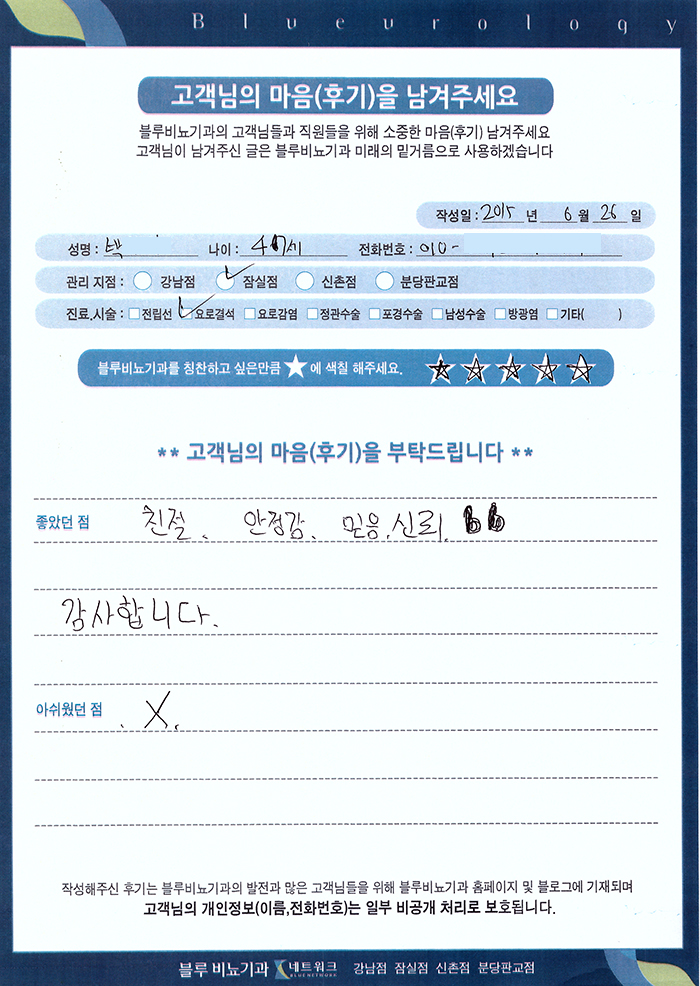 Blueurology
고객님의 마음(후기)을 남겨주세요
블루비뇨기과의 고객님들과 직원들을 위해 소중한 마음(후기) 남겨주세요
고객님이 남겨주신 글은 블루비뇨기과 미래의 밑거름으로 사용하겠습니다
작성일 : 2015 년 6 월 26 일
성명 : 나이 : 47세 전화번호 : 010-
관리 지점 : 강남점 잠실점 신촌점 분당판교점
진료.시술 : 전립선 요로결석 요로감염 정관수술 포경수술 남성수술 방광염 기타( )
블루비뇨기과를 칭찬하고 싶은만큼 ★에 색칠 해주세요.
** 고객님의 마음(후기)을 부탁드립니다 **
좋았던 점 친절. 안정감. 믿음. 신뢰.
감사합니다.
아쉬웠던 점 . X.
작성해주신 후기는 블루비뇨기과의 발전과 많은 고객님들을 위해 블루비뇨기과 홈페이지 및 블로그에 기재되며
고객님의 개인정보(이름,전화번호)는 일부 비공개 처리로 보호됩니다.
블루 비뇨기과 네트워크 BLUE NETWORK 강남점 잠실점 신촌점 분당판교점